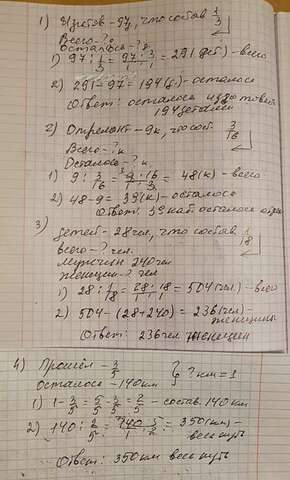 1) Изготов - 97д, что состав 1/3
Всего - ?
Осталось - ?
1) 97 : 1/3 = 97/1 · 3/1 = 291 (дет) - всего
2) 291 - 97 = 194 (д) - осталось
Ответ: осталось изготовить
194 детали
2) Отремонт - 9к, что сост. 3/16
Всего - ? к
Осталось - ? к.
1) 9 : 3/16 = 9/1 · 16/3 = 48 (к) - всего
2) 48 - 9 = 39 (к) - осталось
Ответ: 39 каб. осталось
3)
Детей - 28 чел, что состав 1/18
всего - ? чел.
Мужчин 240 чел
Женщин - ? чел
1) 28 : 1/18 = 28/1 · 18/1 = 504 (чел) - всего
2) 504 - (28 + 240) = 236 (чел) -
женщины
Ответ: 236 чел женщин
4) Прошёл - 3/5
Осталось - 140 км } ? км = 1
1) 1 - 3/5 = 5/5 - 3/5 = 2/5 - состав. 140 км
2) 140 : 2/5 = 140/1 · 5/2 = 350 (км) -
весь путь
Ответ: 350 км весь путь